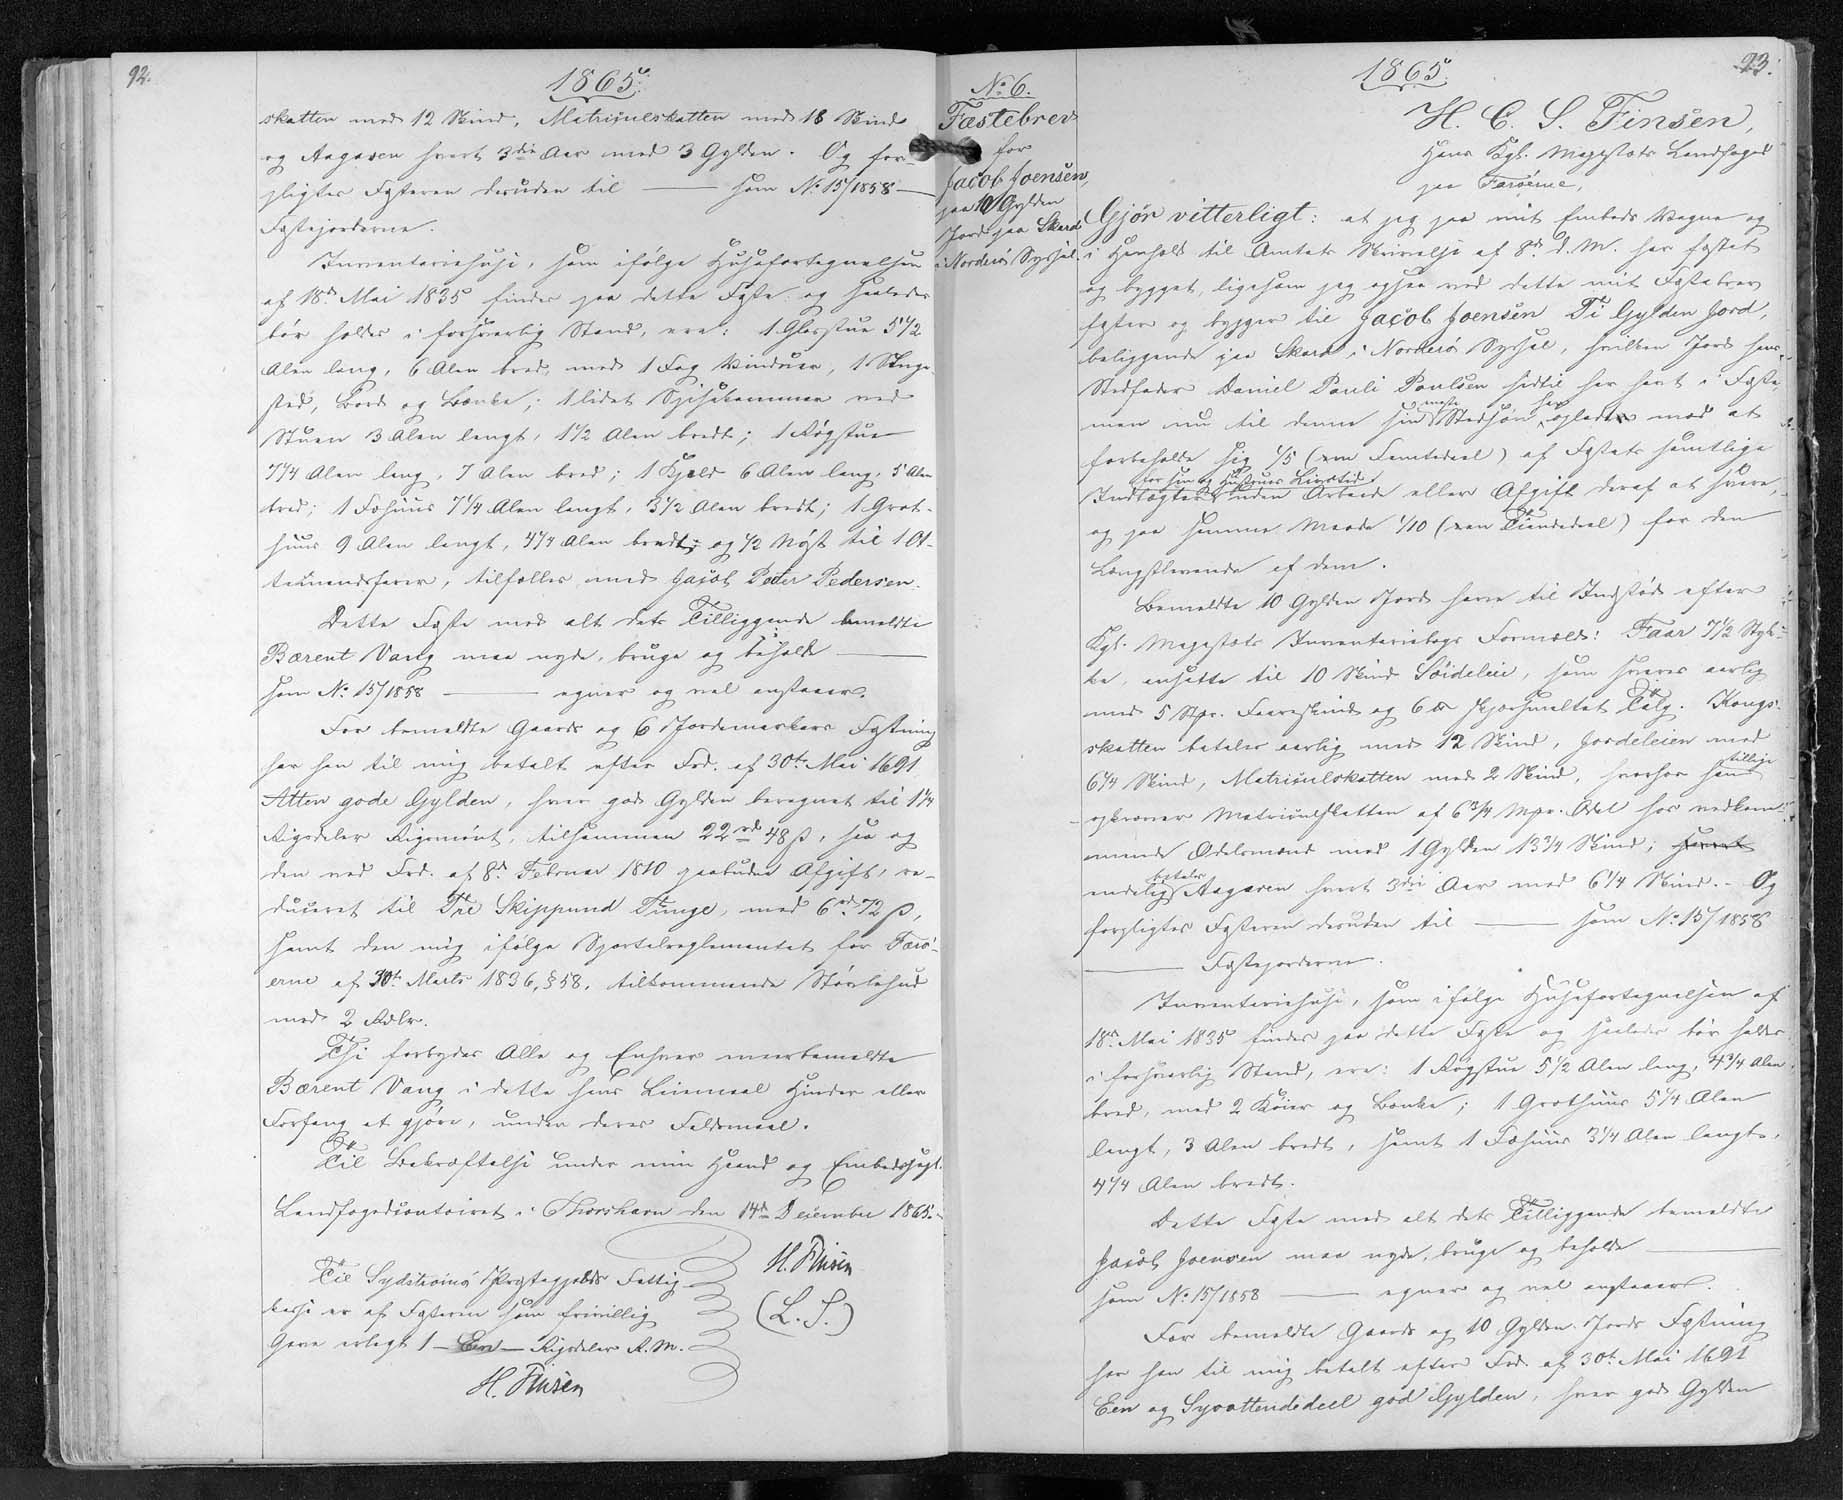 92.
1865.
skatten med 12 Skind, Matriculskatten med 18 Skind
og Aagaven hvert 3die Aar med 3 Gylden. Og for-
pligtes Fæsteren desuden til — som No 15/1858 —
Fæstejorderne.
Inventariehuse, som ifølge Huusfortegnelsen
af 18de Mai 1835 findes paa dette Fæste og saaledes
bør holdes i forsvarlig Stand, ere: 1 Glasstue 5 1/2
Alen lang, 6 Alen bred, med 1 Fag Vinduer, 1 Senge-
sted, Bord og Bænke; 1 lidet Spisekammer ved
Stuen 3 Alen langt, 1 1/2 Alen bredt; 1 Røgstue
7 1/4 Alen lang, 7 Alen bred; 1 Hjeld 6 Alen lang, 5 Alen
bred; 1 Fæhuus 7 1/4 Alen langt, 3 1/2 Alen bredt; 1 Grot-
huus 9 Alen langt, 4 1/4 Alen bredt; og 1/2 Nøst til 1 Ot-
temandsfarer, tilfælles med Jacob Peter Pedersen.
Dette Fæste med alt dets Tilliggende bemeldte
Bærent Vang maa nyde, bruge og beholde —
som No 15/1858 — egner og vel anstaaer.
For bemeldte Gaards og 6 Jordemarkers Fæstning
har han til mig betalt efter Frd. af 30te Mai 1691
Atten gode Gylden, hver god Gylden beregnet til 1 1/4
Rigsdaler Rigsmønt, tilsammen 22 rd 48 ß, saa og
den ved Frd. af 8de Februar 1810 paabudne Afgift, re-
duceret til Tre Skippund Tunge, med 6 rd. 72 ß,
samt den mig ifølge Sportelreglementet for Færø-
erne af 30te Marts 1836, § 58, tilkommende Støvlehud
med 2 Rdlr.
Thi forbydes Alle og Enhver meerbemeldte
Bærent Vang i dette hans Leiemaal Hinder eller
Forfang at gjøre, under deres Faldsmaal.
Til Bekræftelse under min Haand og Embedssegl.
Landfogedcontoiret i Thorshavn den 14de December 1865.
H. Finsen
(L. S.)
Til Syderøens Præstegjelds Fattig-
kasse er af Fæsteren som frivillig
Gave erlagt 1 — Een — Rigsdaler R. M.
H. Finsen
No 6.
Fæstebrev
for
Jacob Joensen,
paa 10 Gylden
Jord paa Skard
i Norderø Syssel.
93.
1865.
H. C. S. Finsen,
Hans Kgl. Majestæts Landfoged
paa Færøerne,
Gjør vitterligt: at jeg paa mit Embeds Vegne og
i Henhold til Amtets Skrivelse af 8de d. M. har fæstet
og bygget, ligesom jeg ogsaa ved dette mit Fæstebrev
fæster og bygger til Jacob Joensen Ti Gylden Jord,
beliggende paa Skard i Norderø Syssel, hvilken Jord hans
Stedfader Daniel Pauli Poulsen hidtil har havt i Fæste,
men nu til denne sin Stedsøn har opladt mod at
forbeholde sig 1/5 (een Femtedeel) af Fæstets samtlige
for sin og Hustrues Livstid
Indtægter uden Arbeide eller Afgift deraf at svare,
og paa samme Maade 1/10 (een Tiendedeel) for den
Længstlevende af dem.
Bemeldte 10 Gylden Jord have til Indstød efter
Kgl. Majestæts Inventariebogs Formeld: Faar 7 1/2 Styk-
ke, ansatte til 10 Skind Søideleie, som svares aarlig
med 5 Stkr. Faareskind og 6 ℔ skjærsmeltet Tælg. Kongs-
skatten betales aarlig med 12 Skind, Jordeleien med
6 1/4 Skind, Matriculskatten med 2 Skind, hvorhos han tillige
opkræver Matriculskatten af 6 3/4 Mrk. Odel hos vedkom-
mende Odelsmænd med 1 Gylden 13 3/4 Skind;
endelig betales Aagaven hvert 3die Aar med 6 1/4 Skind. — Og
forpligtes Fæsteren desuden til — som No 15/1858
— Fæstejorderne.
Inventariehuse, som ifølge Huusfortegnelsen af
18de Mai 1835 findes paa dette Fæste og saaledes bør holdes
i forsvarlig Stand, ere: 1 Røgstue 5 1/2 Alen lang, 4 3/4 Alen
bred, med 2 Køier og Bænke; 1 Grothuus 5 1/4 Alen
langt, 3 Alen bredt, samt 1 Fæhuus 3 1/4 Alen langt,
4 1/4 Alen bredt.
Dette Fæste med alt dets Tilliggende bemeldte
Jacob Joensen maa nyde, bruge og beholde —
som No 15/1858 — egner og vel anstaaer.
For bemeldte Gaards og 10 Gylden Jords Fæstning
har han til mig betalt efter Frd. af 30te Mai 1691
Een og Syvottendedeel god Gylden, hver god Gylden